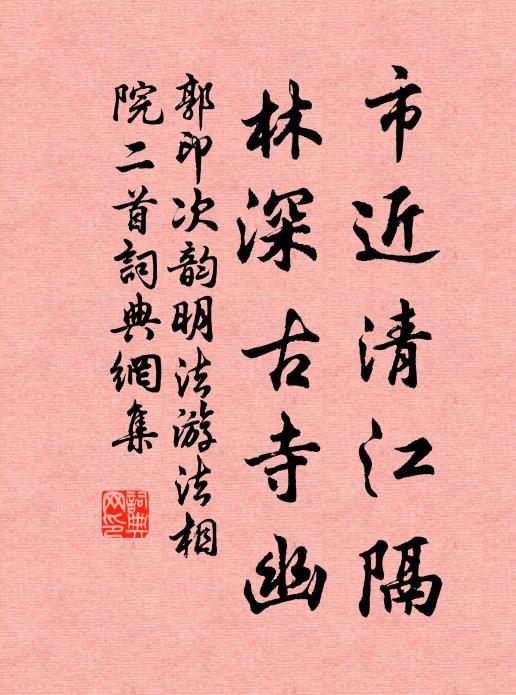 市近清江隔
林深古寺幽
郭印次韵明法游法相
院二首詞典網集
詞典
网印